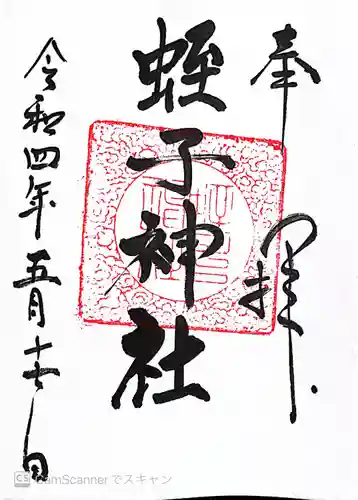 奉拝
蛭子神社
令和四年五月十七日
CS CamScanner でスキャン